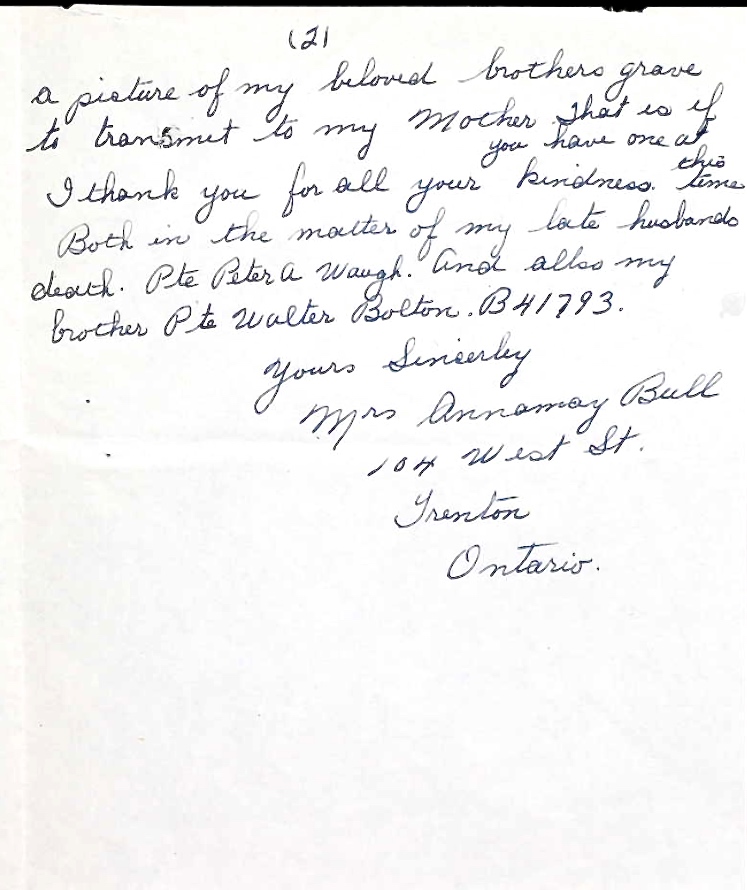 (2)
a picture of my beloved brothers grave
to transmit to my Mother That is if
you have one at
this
I thank you for all your kindness. time
Both in the matter of my late husbands
death. Pte Peter A Waugh. And allso my
brother Pte Walter Bolton. B41793.
Yours Sincerley
Mrs Annamay Bull
104 West St.
Trenton
Ontario.